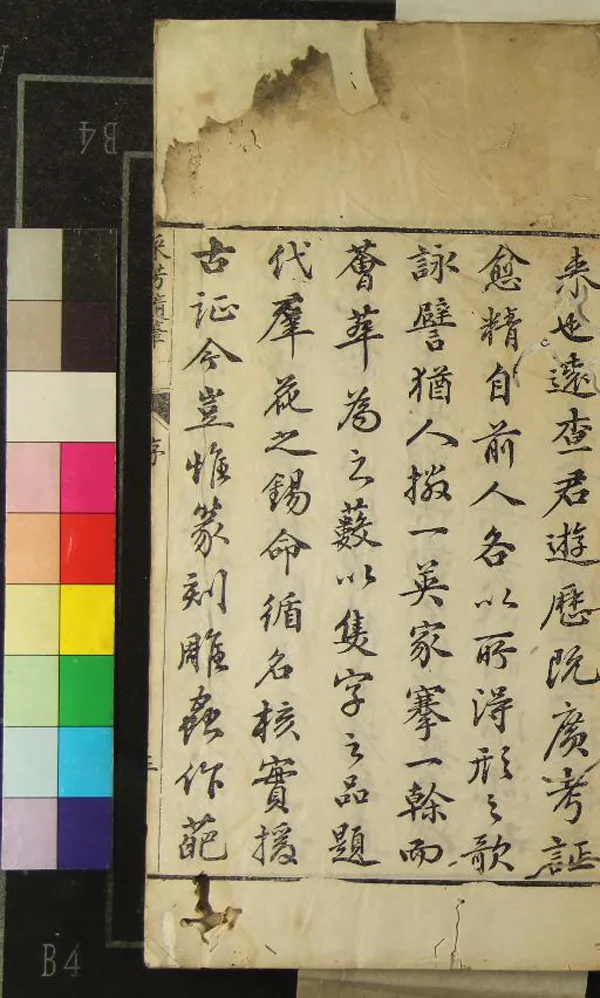 来也遠查君遊歷既廣考証
愈精自前人各以所得形之歌
詠譬猶人擷一英家搴一榦而
薈萃為之藪以隻字之品題
代羣花之錫命循名核實援
古証今豈惟篆刻雕蟲作葩
采芳隨筆
序
三
B4
B4